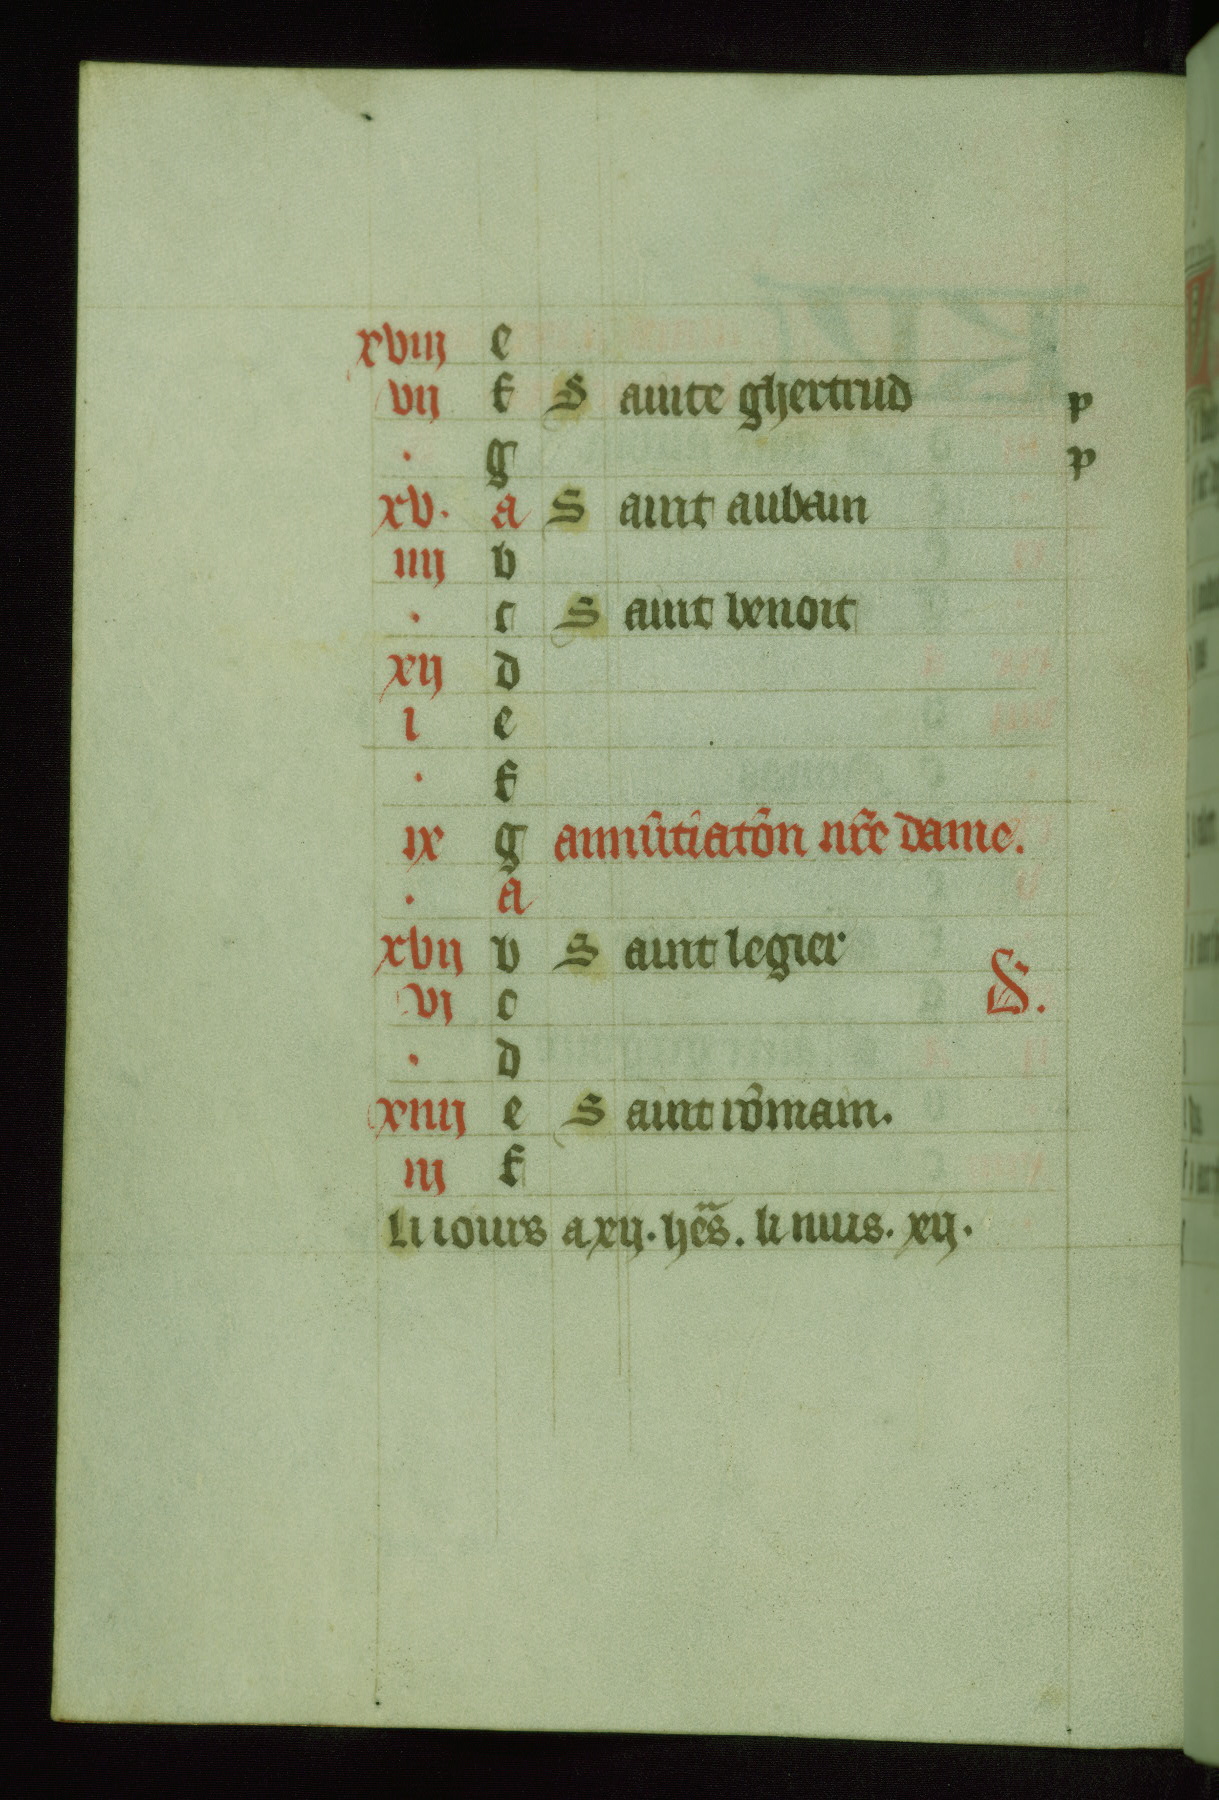 xviij e
vij f Sainte ghertrud p
. g p
xv. a Saint aubain
iiij b
. c Saint benoit
xij d
i e
. f
ix g annũtiatõn nr̃e dame.
. a
xvij b Saint legier
vj c S.
. d
xiiij e Saint rõmain.
iij f
li iours a xij. hẽs. li nuis. xij.